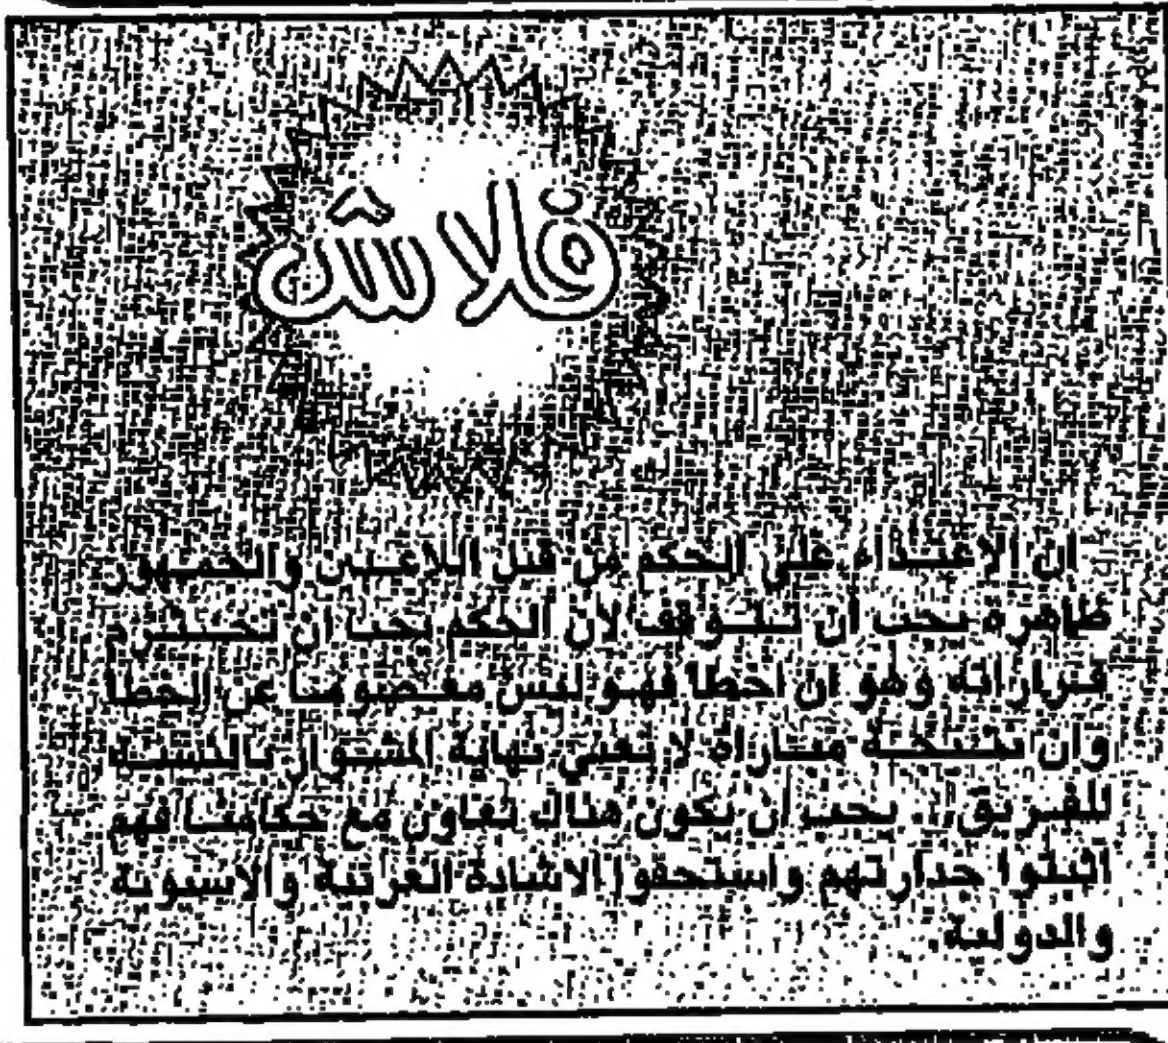 فلاش
ان الاعتداء على الحكم من قبل اللاعبين والجمهور
ظاهرة يجب أن تتوقف لأن الحكم يجب ان تحترم
قراراته وهو ان اخطا فهو ليس معصوما عن الخطا
وان نتيجة مباراة لا تعني نهاية المشوار بالنسبة
للفريق.. يجب ان يكون هناك تعاون مع حكامنا فهم
اثبتوا جدارتهم واستحقوا الاشادة العربية والاسيوية
والدولية.